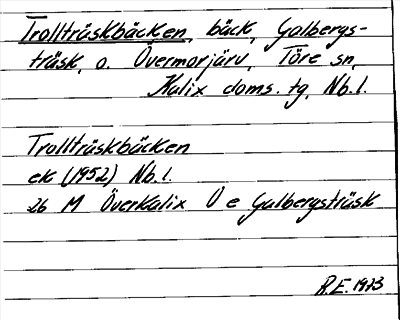 Trollträskbäcken, bäck, Galbergs-
träsk, o. Övermorjärv, Töre sn,
Kalix doms. tg, Nb. l.
Trollträskbäcken
ek (1952) Nb. l.
26 M Överkalix V e Galbergsträsk
R.E. 1973